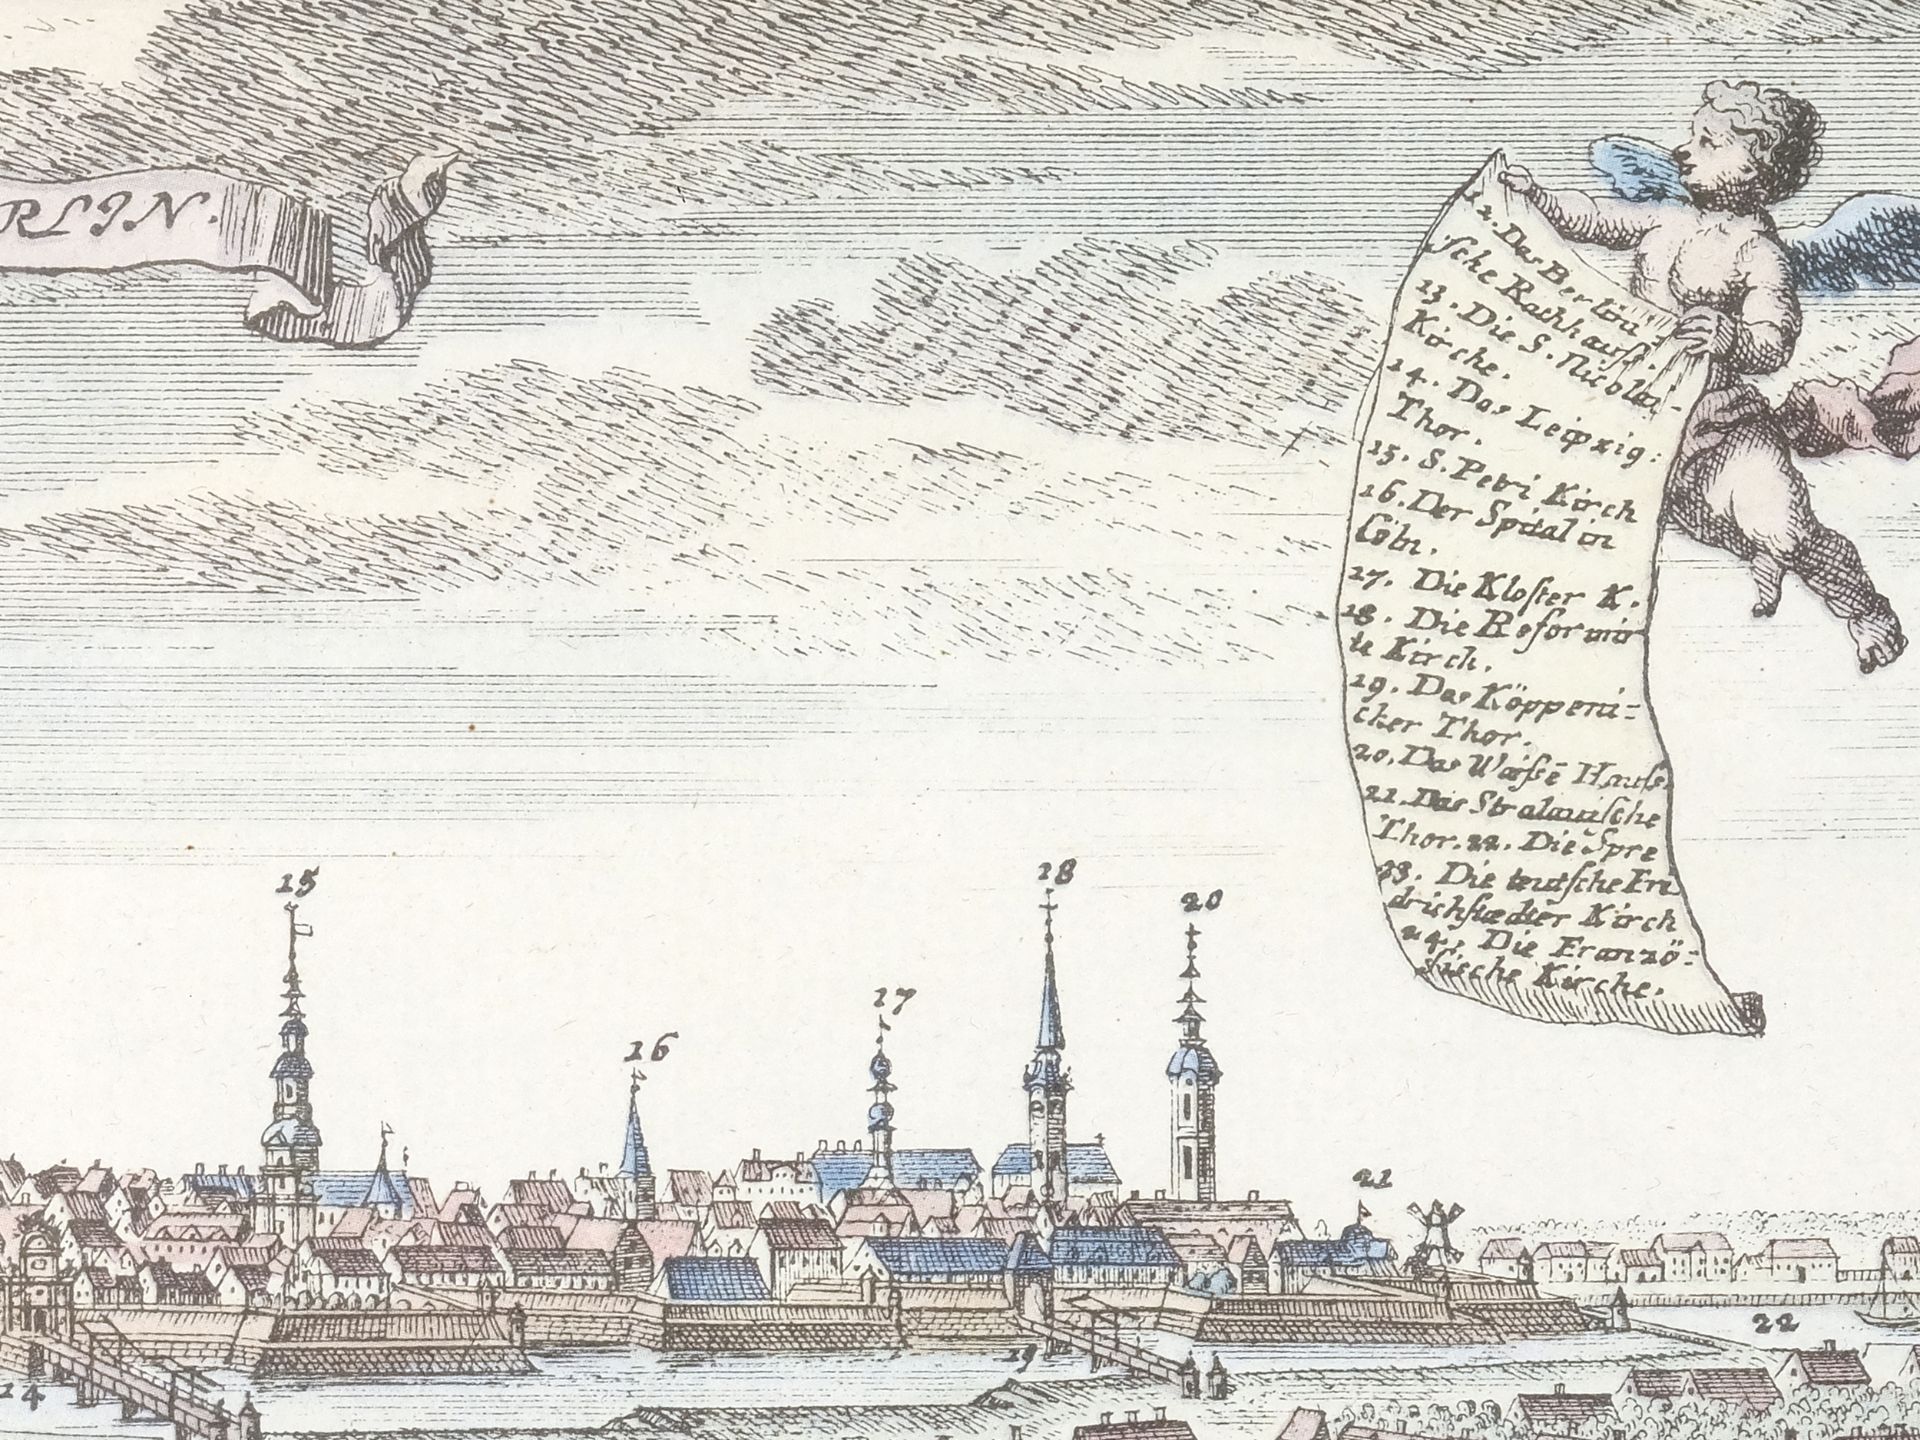 RLIN.
12. Das Berlini-
sche Rathhauß.
13. Die S. Nicolai-
Kirche.
14. Das Leipzig:
Thor.
15. S. Petri Kirch
16. Der Spital in
Cöln.
17. Die Kloster K.
18. Die Reformir
te Kirch.
19. Das Köppeni-
cker Thor.
20. Das Wäÿsē Hauß
21. Das Stralauische
Thor. 22. Die Spre
23. Die teutsche Fri
drichstædter Kirch
24. Die Franzö-
sische Kirche.
15
18
20
17
16
21
22
19
14